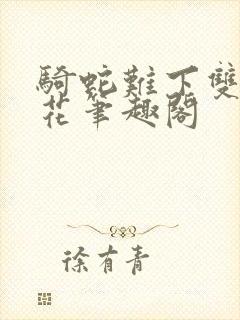 騎蛇難下雙
花筆趣閣
徐有青